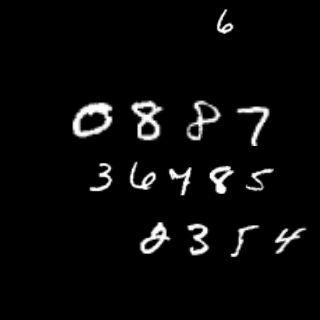 6
0887
36485
2354